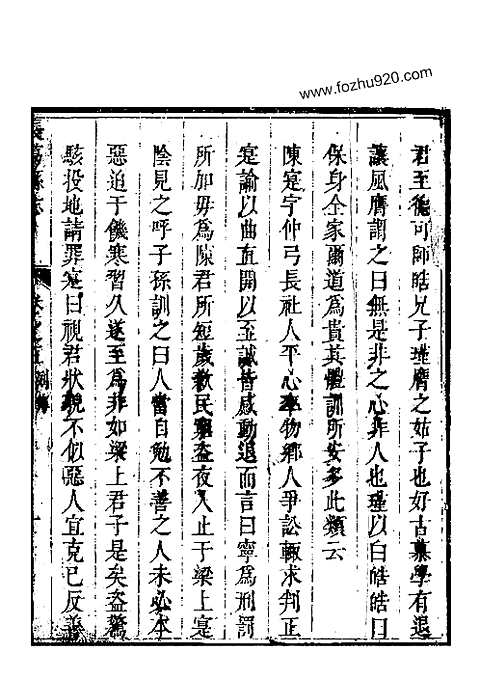 www.fozhu920.com
君至德可師皓兄子瑾膺之姑子也好古慕學有退
讓風膺謂之曰無是非之心非人也瑾以白皓皓曰
保身全家爾道為貴其體訓所安多此類云
陳寔字仲弓長社人平心率物鄉人爭訟輒求判正
寔諭以曲直開以至誠皆感動退而言曰寧為刑罰
所加毋為陳君所短歲歉民窮盜夜入止于梁上寔
陰見之呼子孫訓之曰人當自勉不善之人未必本
惡迫于饑寒習久遂至為非如梁上君子是矣盜驚
駭投地請罪寔曰視君狀貌不似惡人宜克己反善
長葛縣志 列傳